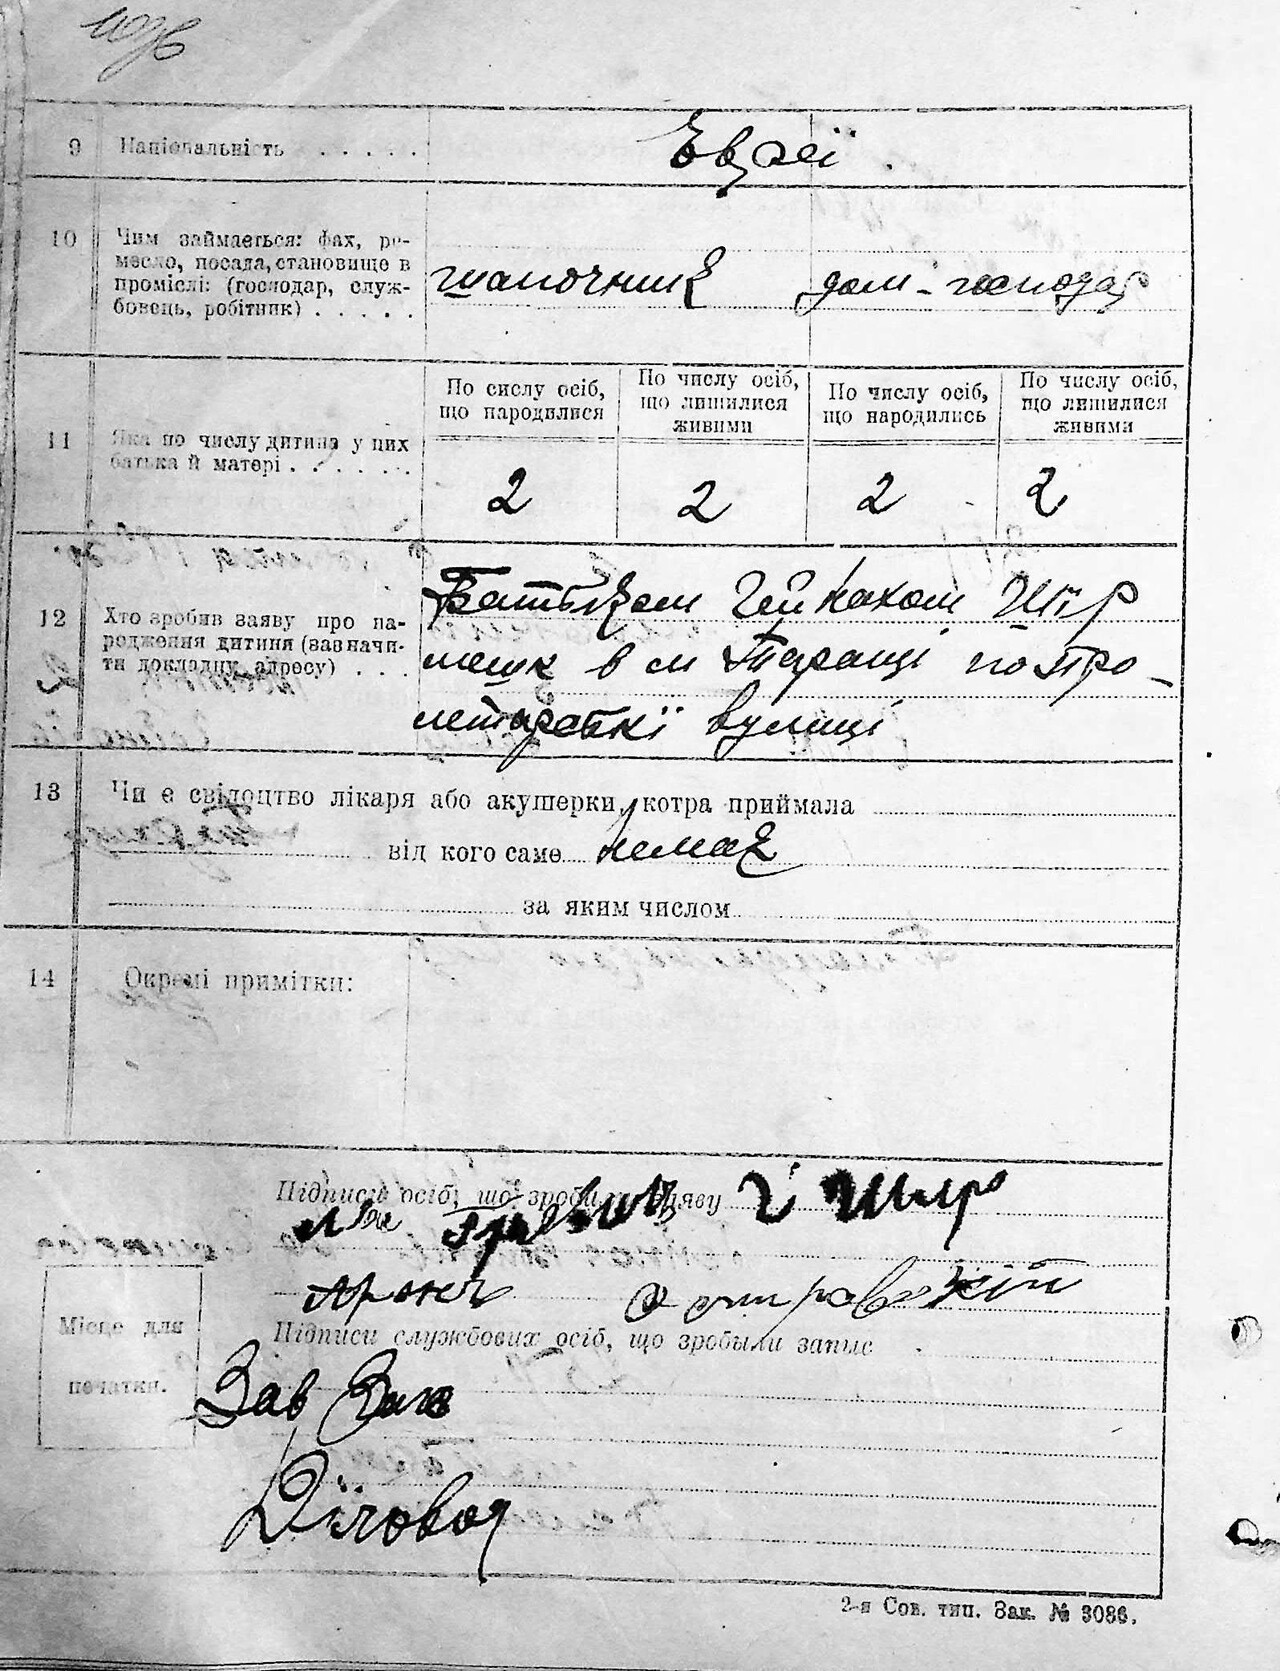 9 Національність
Євреї
10 Чим займається: фах, ре-
месло, посада, становище в
промислі: (господар, служ-
бовець, робітник)
шапочник дом-господар
11 Яка по числу дитина у цих
батька й матері
По сислу осіб,
що народилися
По числу осіб,
що лишилися
живими
По числу осіб,
що народились
По числу осіб,
що лишилися
живими
2 2 2 2
12 Хто зробив заяву про на-
родження дитини (зазначи-
ти докладну адресу)
Батьком Шір
в м Таращі по про-
летарські вулиці
13 Чи є свідоцтво лікаря або акушерки, котра приймала
від кого саме немає
за яким числом
14 Окремі примітки:
Підписи осіб, що зробили заяву Г Шир
Підписи службових осіб, що зробыли запис
Місце для
печатки.
Зав
Діловод
2-я Сов. тип. Зак. № 3086.